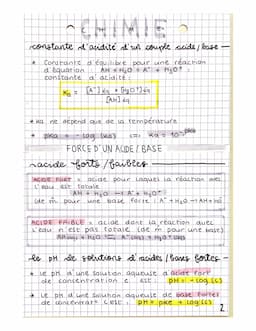 CHIMIE
constante d'acidité d'un couple acide/base
* Constante d'équilibre pour une réaction
d'équation : AH + H₂O = A⁻ + H₃O⁺ :
constante d'acidité :
Ka = [A⁻]éq * [H₃O⁺]éq
[AH]éq
* Ka ne dépend que de la température
* pKa = - log (Ka) <=> Ka = 10^-pKa
FORCE D'UN ACIDE / BASE
acide forts / faibles
ACIDE FORT = acide pour laquels la réaction avec
l'eau est totale
AH + H₂O → A⁻ + H₃O⁺
(de m̂ pour une base forte : A⁻ + H₂O → AH + HO⁻)
ACIDE FAIBLE = acide dont la réaction avec
l'eau n'est pas totale (de m̂ pour une base)
le pH de solutions d'acides / bases fortes
* Le pH d'une solution aqueuse d'acide fort
de concentration c est : pH = - log (c)
* Le pH d'une solution aqueuse de base fortes
de concentrat° c est : pH = pKe + log (c)
2